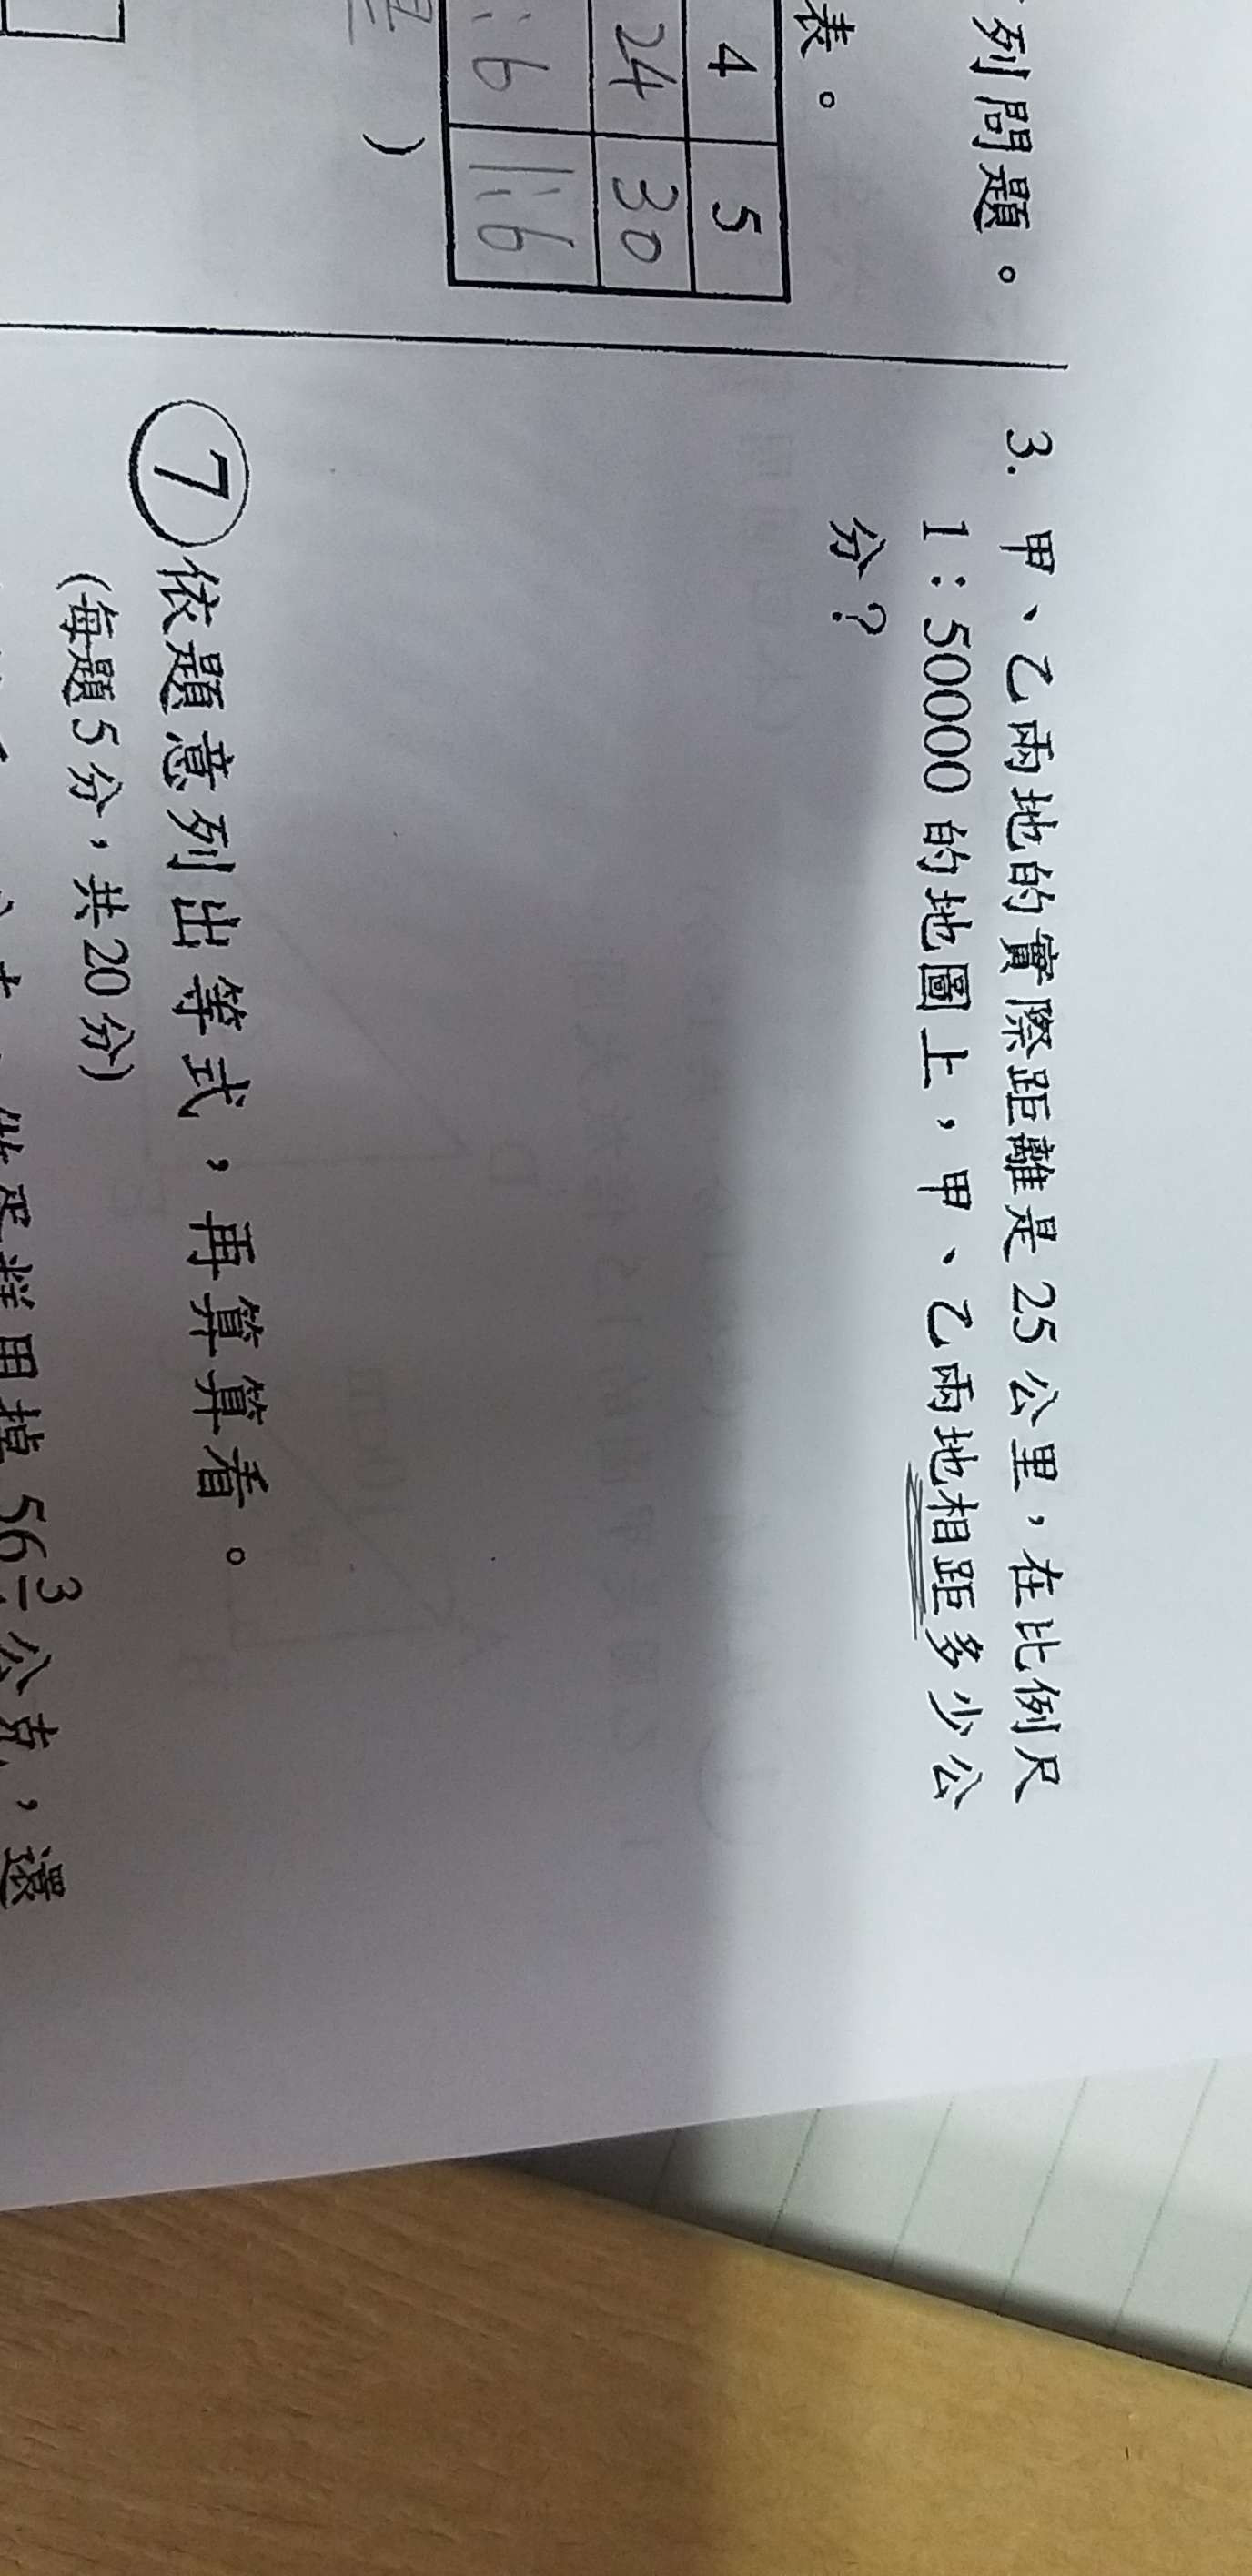 列問題。
表。
4 5
24 30
:6 1:6
)
3. 甲、乙兩地的實際距離是25公里，在比例尺
1：50000的地圖上，甲、乙兩地相距多少公
分？
⑦依題意列出等式，再算算看。
(每題5分，共20分)
做蛋糕用掉56 3 公克，還